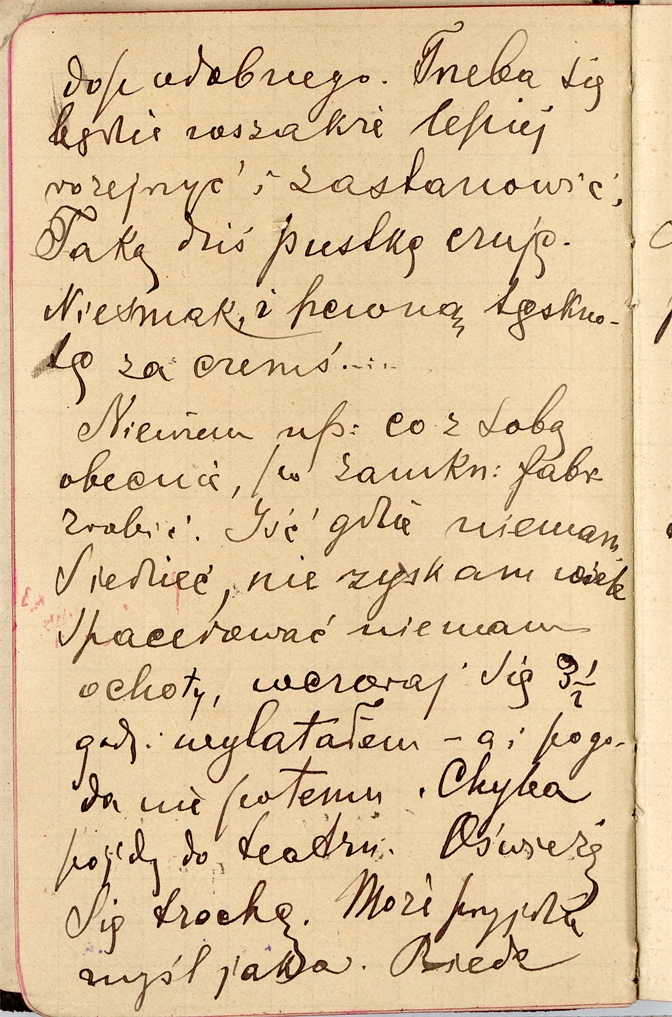 dop odobnego. Trzeba się
będzie wszakże lepiej
rozejrzyć i zastanowić,
Taką dziś pustkę czuję.
Niesmak, i pewną tęskno-
tę za czemś....
Niewiem np: co z sobą
obecnie, po zamkn: fabr
zrobić. Iść gdzie niemam.
Siedzieć, nie zyskam wiele
Spacerować niemam
ochoty, wczoraj się 3½
godz. wylatałem – a i pogo-
da nie potemu. Chyba
pójdę do teatru. Oświeżę
się trochę. Może przyjdzie
myśl jaka.